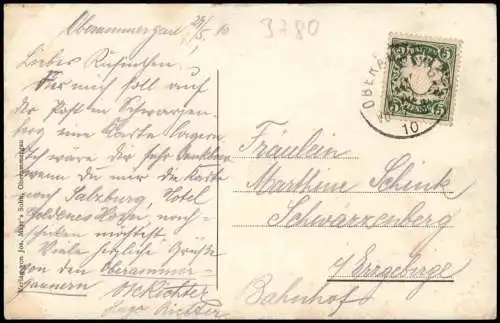 Oberammergau 29/5. 10
3780
Liebes Kusinchen!
Für mich soll auf
der Post in Schwarzen-
berg eine Karte lagern.
Ich wäre Dir sehr dankbar
wenn du mir die Karte
nach Salzburg, Hotel
Goldenes Horn nach-
schicken möchtest.
Viele herzliche Grüße
von den Oberammer-
gauern
Richter
Hugo Richter
Verlag von Jos. Mayr's Sohn, Oberammergau
5 5
5 5
OBERA
10
Fräulein
Marthine Schink
Schwarzenberg
i/Erzgebirge
Bahnhof